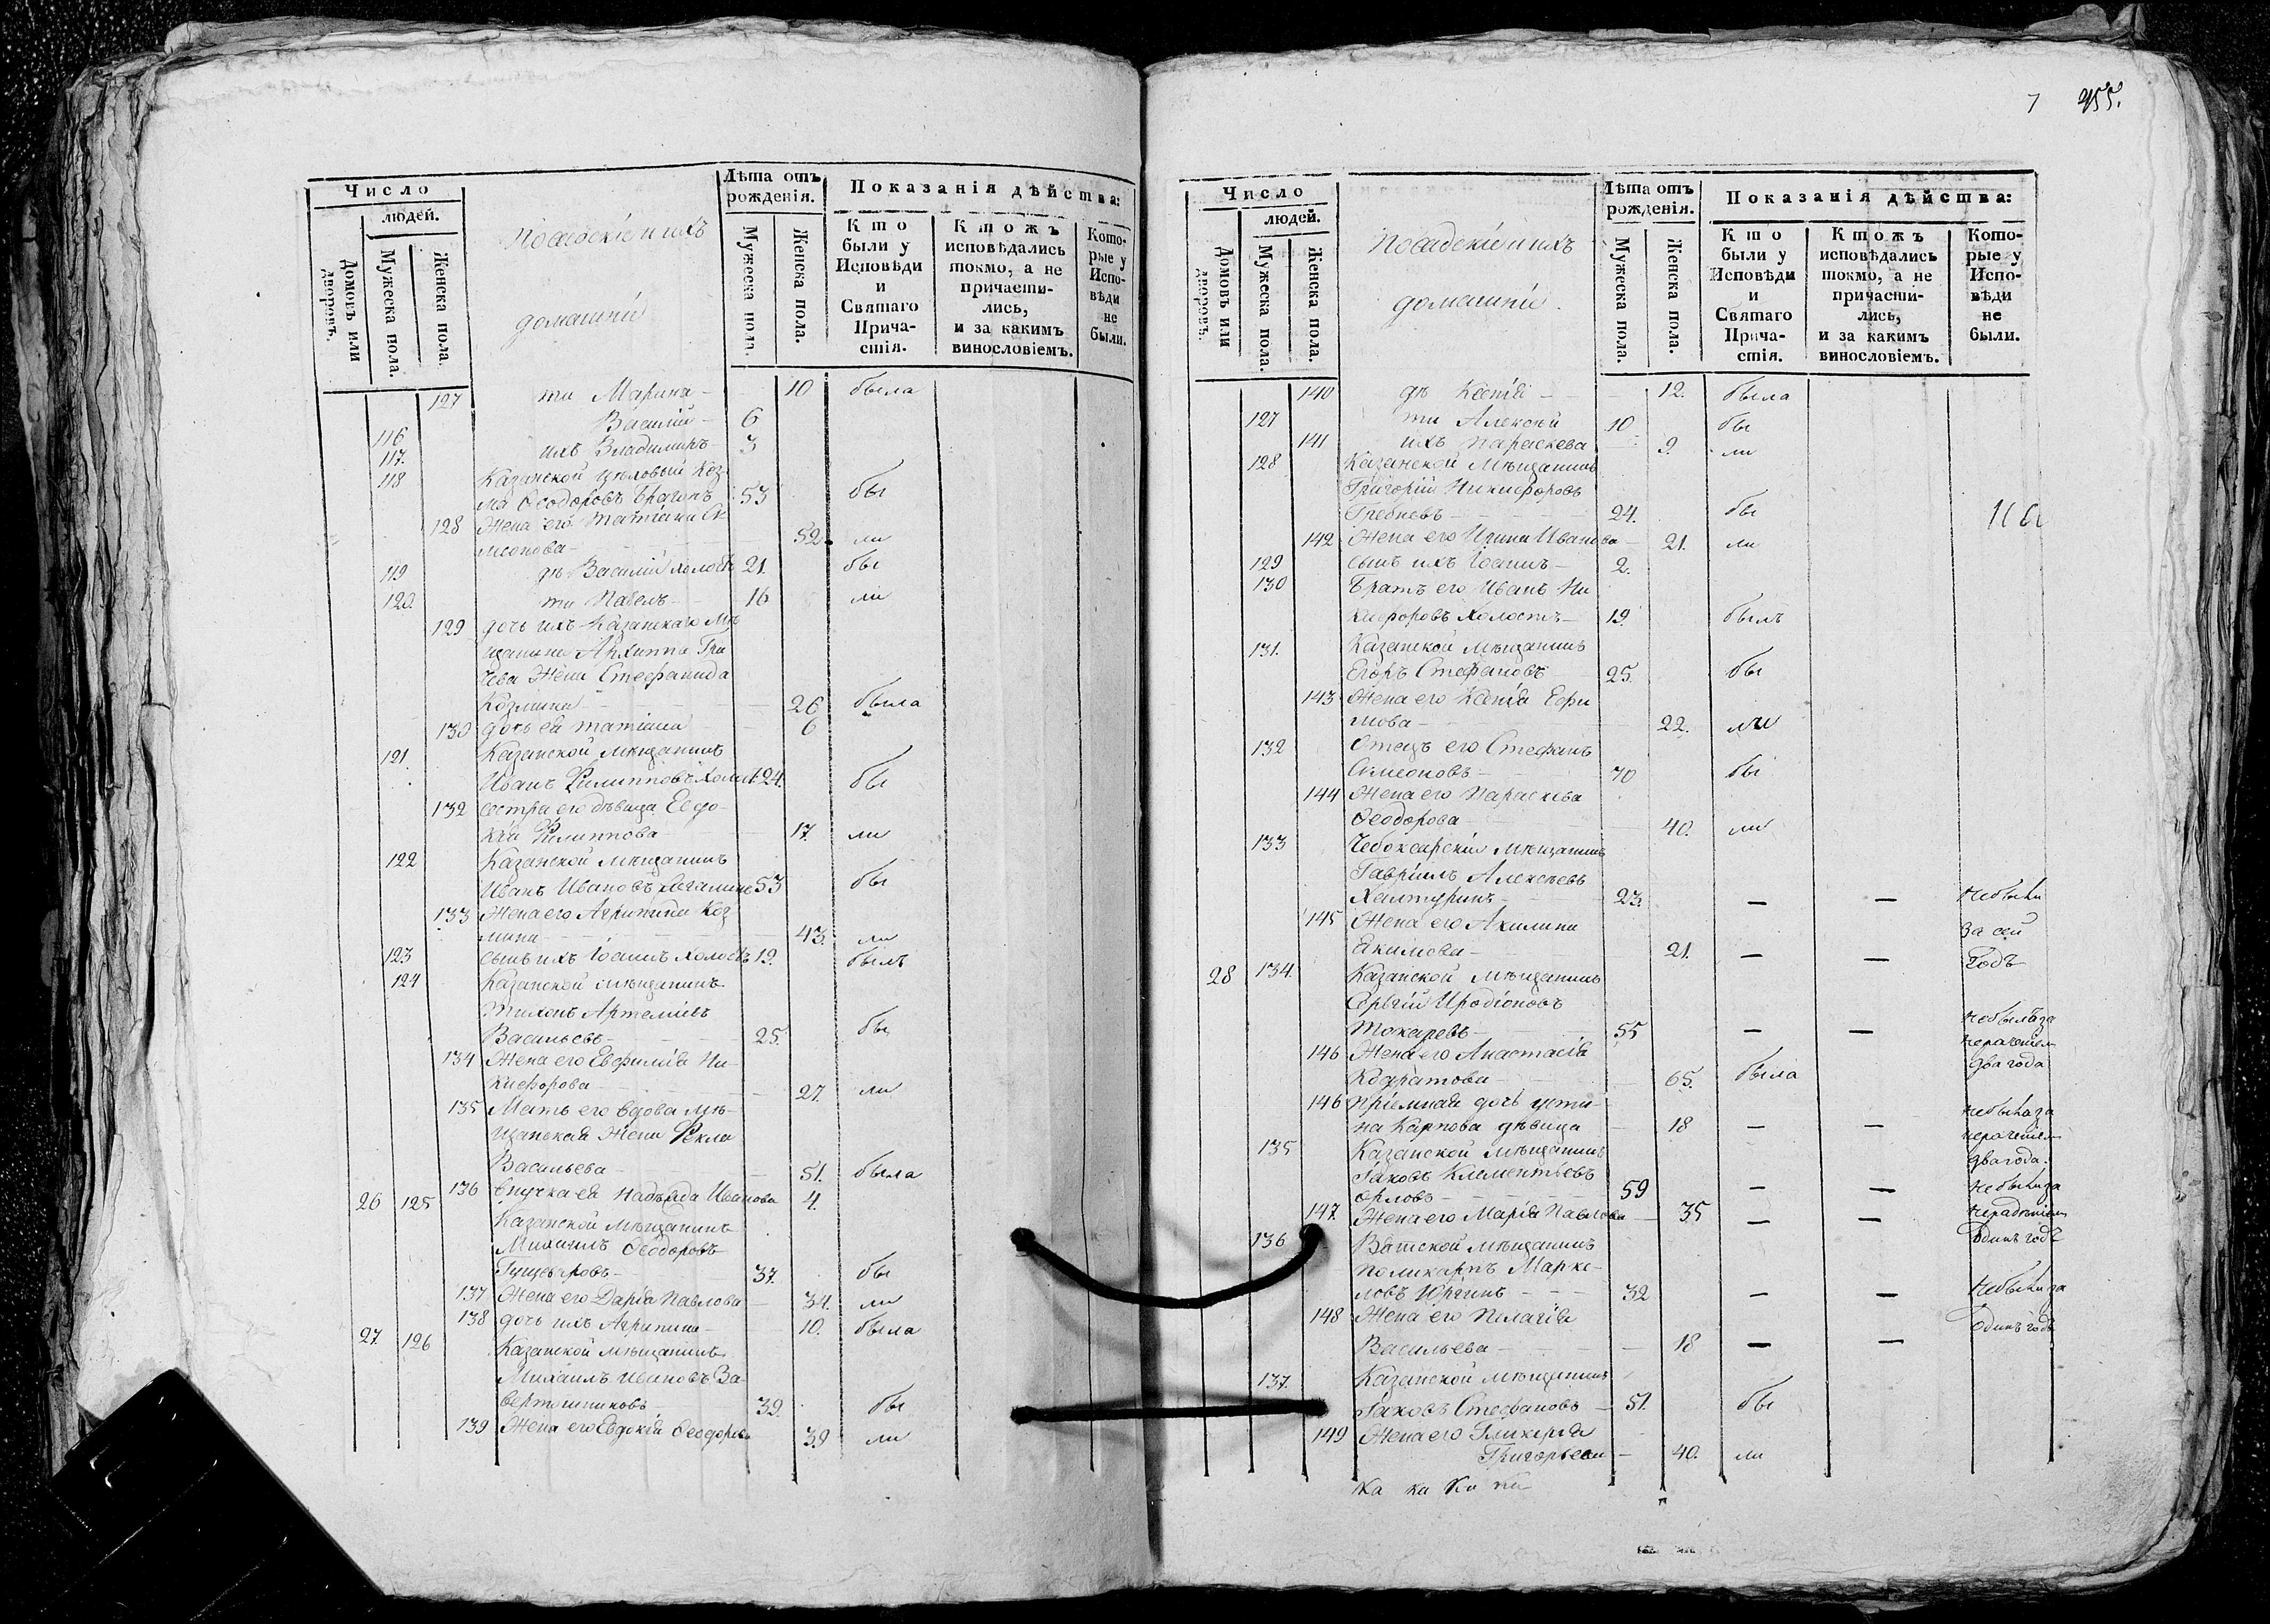 Число
людей.
Домовъ или дворовъ.
Мужеска пола.
Женска пола.
Посадскіе и ихъ
домашніи
Лѣта отъ рожденія.
Мужеска пола.
Женска пола.
Показанія дѣйства:
Кто были у Исповѣди и Святаго Причастія.
Ктожъ исповѣдались токмо, а не причастились, и за какимъ винословіемъ.
Которые у Исповѣди не были.
127 ти Марина 10 была
116 Василій 6
117. ихъ Владимиръ 3
118 Казанской цѣховый Коз
ма Ѳеодоровъ 53 бы
128 Жена его Татіана Си
меонова 52. ли
119 дѣ Василій холостъ 21. бы
120. ти Павелъ 16 ли
129 дочь ихъ Казанскаго Мѣ
щанина Архиппа Гри
Жена Стефанида
Козмина 26 была
130 дочь ея Татіана 6
121. Казанской мѣщанинъ
Иванъ Филипповъ Холост. 24. бы
132 сестра его дѣвица Евдо
кія Филиппова 17. ли
122 Казанской мѣщанинъ
Иванъ Ивановъ 53 бы
133 Жена его Агрипина Коз
мина 43. ли
123 сынъ ихъ Іоаннъ Холостъ 19. былъ
124 Казанской мѣщанинъ
Тихонъ Артеміевъ
Васильевъ 25. бы
134 Жена его Евфимія Ни
кифорова 27. ли
135 Мать его вдова мѣ
щанская Жена Ѳекла
Васильева 51. была
136 внучка ея Надежда Иванова 4.
26 125 Казанской мѣщанинъ
Михаилъ Ѳеодоровъ
37. бы
137 Жена его Дарія Павлова 34. ли
138 дочь ихъ Агрипина 10. была
27. 126 Казанской мѣщанинъ
Михаилъ Ивановъ За
39. бы
139 Жена его Евдокія Ѳеодорова 39 ли
7 455.
Число
людей.
Домовъ или дворовъ.
Мужеска пола.
Женска пола.
Посадскіе и ихъ
домашніи.
Лѣта отъ рожденія.
Мужеска пола.
Женска пола.
Показанія дѣйства:
Кто были у Исповѣди и Святаго Причастія.
Ктожъ исповѣдались токмо, а не причастились, и за какимъ винословіемъ.
Которые у Исповѣди не были.
140 дѣ Ксенія 12. была
127 ти Алексѣй 10 бы
141 ихъ Параскева 9. ли
128 Казанской Мѣщанинъ
Григорій Никифоровъ
Гребневъ 24. бы
142 Жена его Ирина Иванова 21. ли
129 сынъ ихъ Іоаннъ 2.
130 Братъ его Иванъ Ни
кифоровъ Холостъ 19. былъ
131. Казанской мѣщанинъ
Егоръ Стефановъ 25. бы
143 Жена его Ксенія Ефи
мова 22. ли
132 Отецъ его Стефанъ
Симеоновъ 70 бы
144 Жена его Параскева
Ѳеодорова 40. ли
133 Чебоксарскій мѣщанинъ
Гавріилъ Алексѣевъ
Халтуринъ 23. — — небыли
145 Жена его Акилина за сей
Екимова 21. — — Годъ
28 134. Казанской мѣщанинъ
Сергій Иродіоновъ
Токаревъ 55 — — небылъ за
146 Жена его Анастасія нераченіем
Кодратова 65. была два года
146 Пріемная дочь Усти небыла за
на Карпова дѣвица 18 — — нераченіем
135 Казанской мѣщанинъ два года.
Іаковъ Климентьевъ
Орловъ 59 — — небыли за
147. Жена его Марія Павлова 35 — — нерадѣніем
136 Вятской мѣщанинъ Одинъ годъ
Поликарпъ Марке
ловъ Юргинъ 32 — — Небыли за
148 Жена его Пелагія Одинъ годъ
Васильева 18 — —
137. Казанской мѣщанинъ
Іаковъ Стефановъ 51. бы
149 Жена его Гликерія
Григорьева 40. ли
Ка ка Ка ка